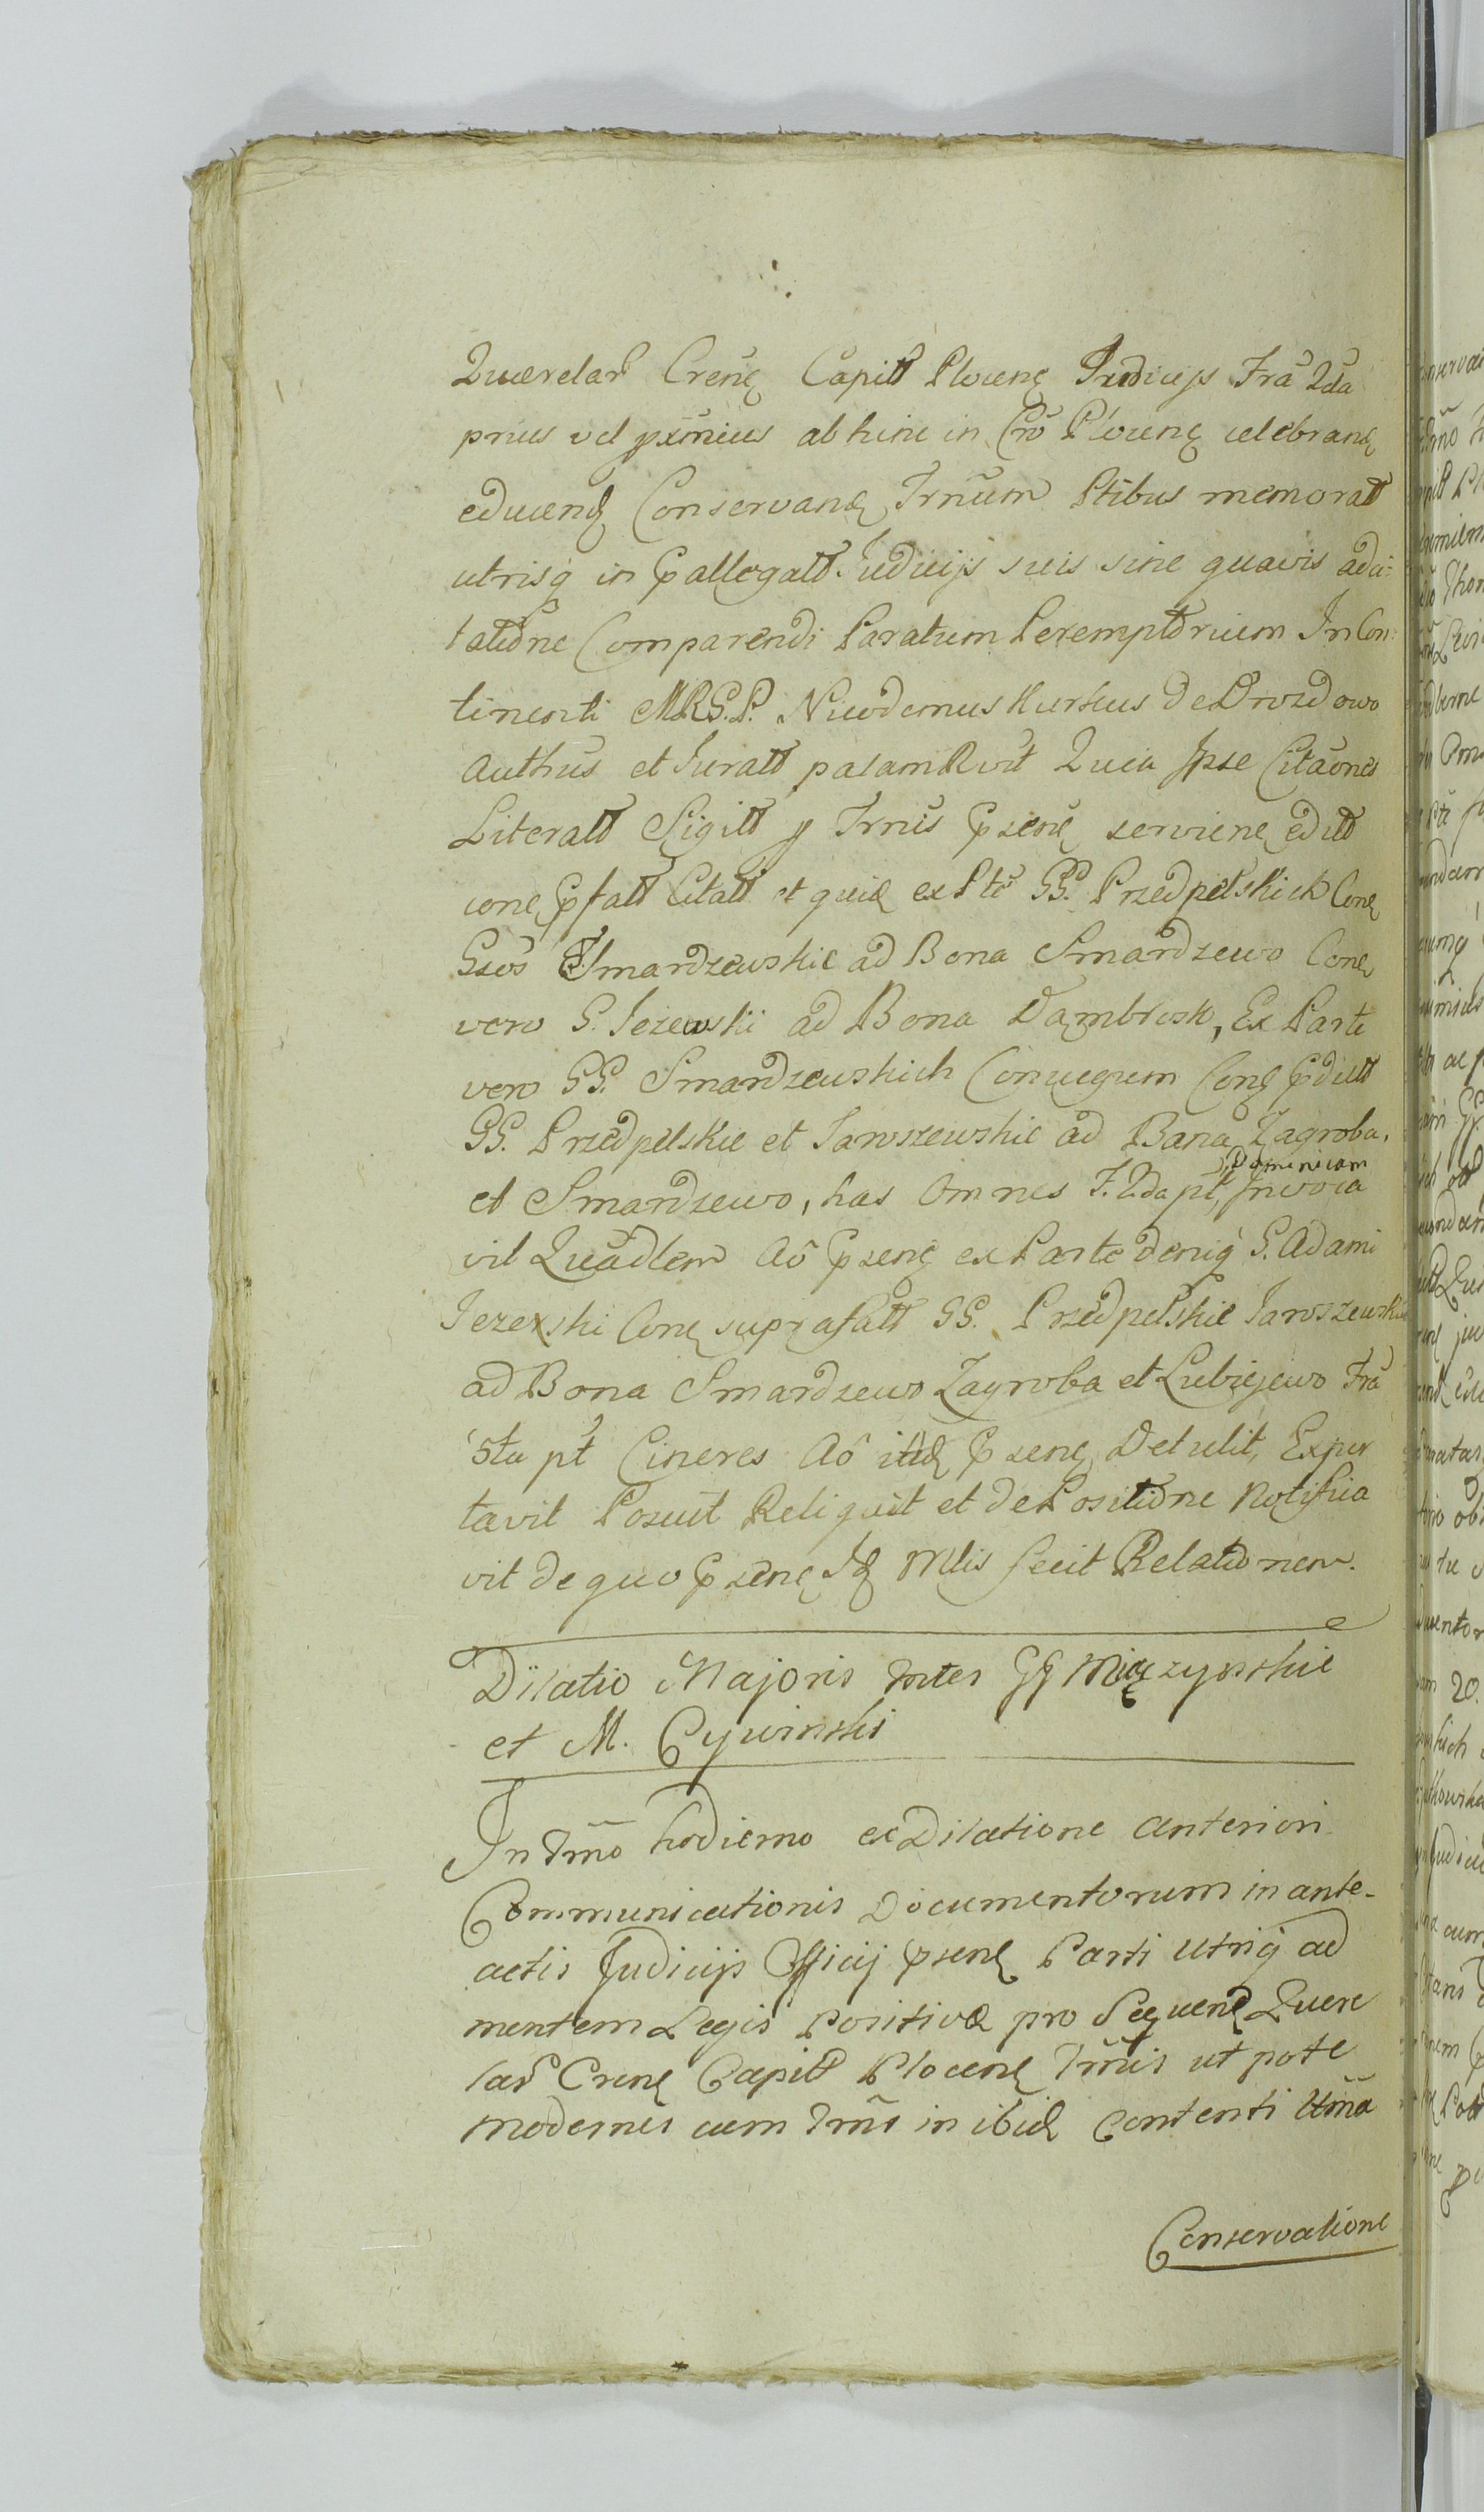 Quærelar Crenę Capitt Plocenę Judicijs Fra 2da
prius vel pximius ab hinc in Cro Plocenę celebranę
educenę Conservanę Trnum Ptibus memoratt
utrisq in pallegatt Judicijs suis sine quavis adci:
tatione Comparendi Paratum Peremptorium In Con:
tinenti MRG.P. Nicodemus Kurkus de Drozdowo
Authus et Juratt palam Rvit Quia Ipse Citaones
Literatt Sigitt p Trnis psenę servienę edidt
conę pfatt Citatt et quię ex Pte GG. Przedpelskich Conę
Gsos Smardzewskie ad Bona Smardzewo Conę
vero G. Jezewski ad Bona Dąmbrosk, Ex Parte
vero GG. Smardzewskich Conjugum Conę pdictt
GG. Przedpelskie et Jaroszewskie ad Bana Zagroba,
et Smardzewo, has Omnes F. 2da pt Dominicam Invoca
vit Quadlem Ao psenę ex Parte deniq G. Adami
Jezewski Conę suprafatt GG. Przedpelskie Jaroszewskie
ad Bona Smardzewo Zagroba et Lubiejewo Fra
5ta pt Cineres Ao itid psenę Detulit, Expor
tavit Posuit Reliquit et de Positione Notifica
vit de quo psenę Idę Mlis fecit Relationem.
Dilatio Majoris Inter GG Mięczynskie
et M. Cywinski
In Tmo hodierno ex Dilatione anteriori
Communicationis Documentorum in ante-
actis Judicijs Officij psenę Parti utriq ad
mentem Legis positivæ pro Sequenę Quere
lar Crenę Capitt Plocenę Tmis ut pote
modernis cum Tmi in ibię contenti Uma
Conservatione